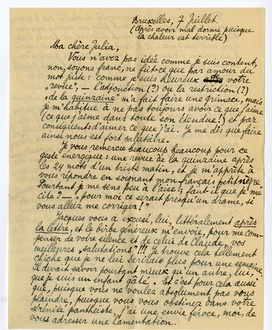 Bruxelles, 7 Juillet.
(Après avoir mal dormi puisque
la chaleur est terrible)
Ma chère Julia,
Vous n'avez pas idée comme je suis content,
non, soyons franc, ne fût-ce que par amour du
mot juste: comme je suis heureux votre
revue, — l'adjonction (?) ou la restriction (?)
de la quinzaine m'a fait faire une grimace, mais
je m'habitue à ne pas toujours avoir ce que j'aime
(ce que j'aime dans toute son étendue!) et par
conséquent d'aimer ce que j'ai. Je me dis que faire
ainsi nous est fort salutaire.
Je vous remercie beaucoup beaucoup pour ce
geste énergique: une revue de la quinzaine après
les 29 mots d'un triste matin, et je m'apprête à
vous répondre en soignant mon français
Pourtant je me sens peu à l'aise; faut-il que je me
cite? — pour moi ce serait presqu'un drame, si
vous alliez me corriger!
Jacques vous a excusé, lui, littéralement après
la lettre, et le birth généreux m'envoie, pour me com-
penser de votre silence et de celui de Claude, vos
meilleures salutations"!!! Je trouve cela tellement
chiche que je ne lui écrirai plus pour une
Il devait savoir pourtant mieux qu'un autre, lui,
que je suis un enfant gâté. Et c'est pour cela aussi
que, puisque vous ne voulez absolument pas vous
plaindre, puisque vous vous obstinez dans votre
sérénité panthéiste, j'ai une envie féroce, moi, de
vous adresser une lamentation.